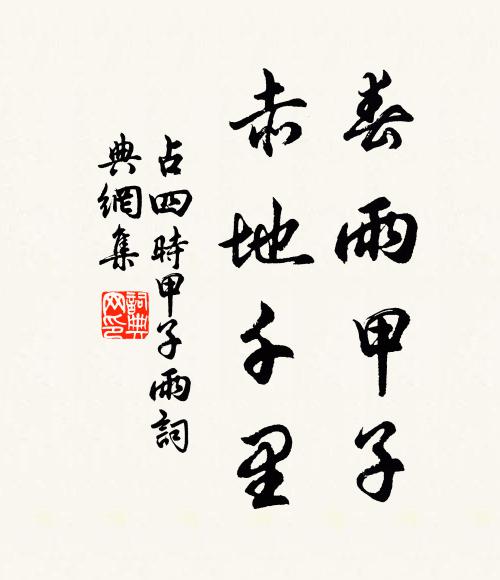 春雨甲子
赤地千里
占四時甲子雨詞
典網集
詞典
网印